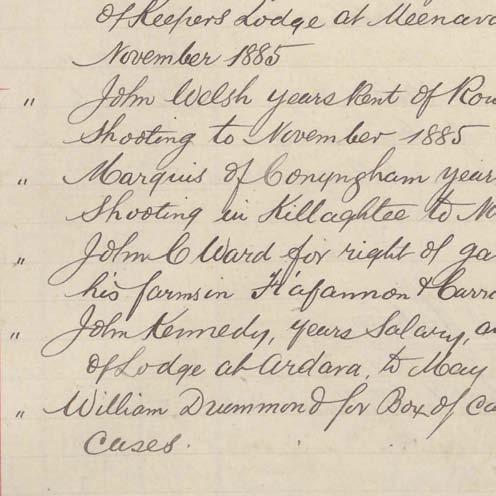 of Keepers Lodge at Meenava
November 1885
" John Welsh years Rent of Rou
Shooting to November 1885
" Marquis of Conyngham year
Shooting in Killaghtee to
" John C Ward for right of ga
his farms in & Carro
" John Kennedy, years Salary, a
of Lodge at Ardara, to May
" William Drummond for Box of Ca
Cases.